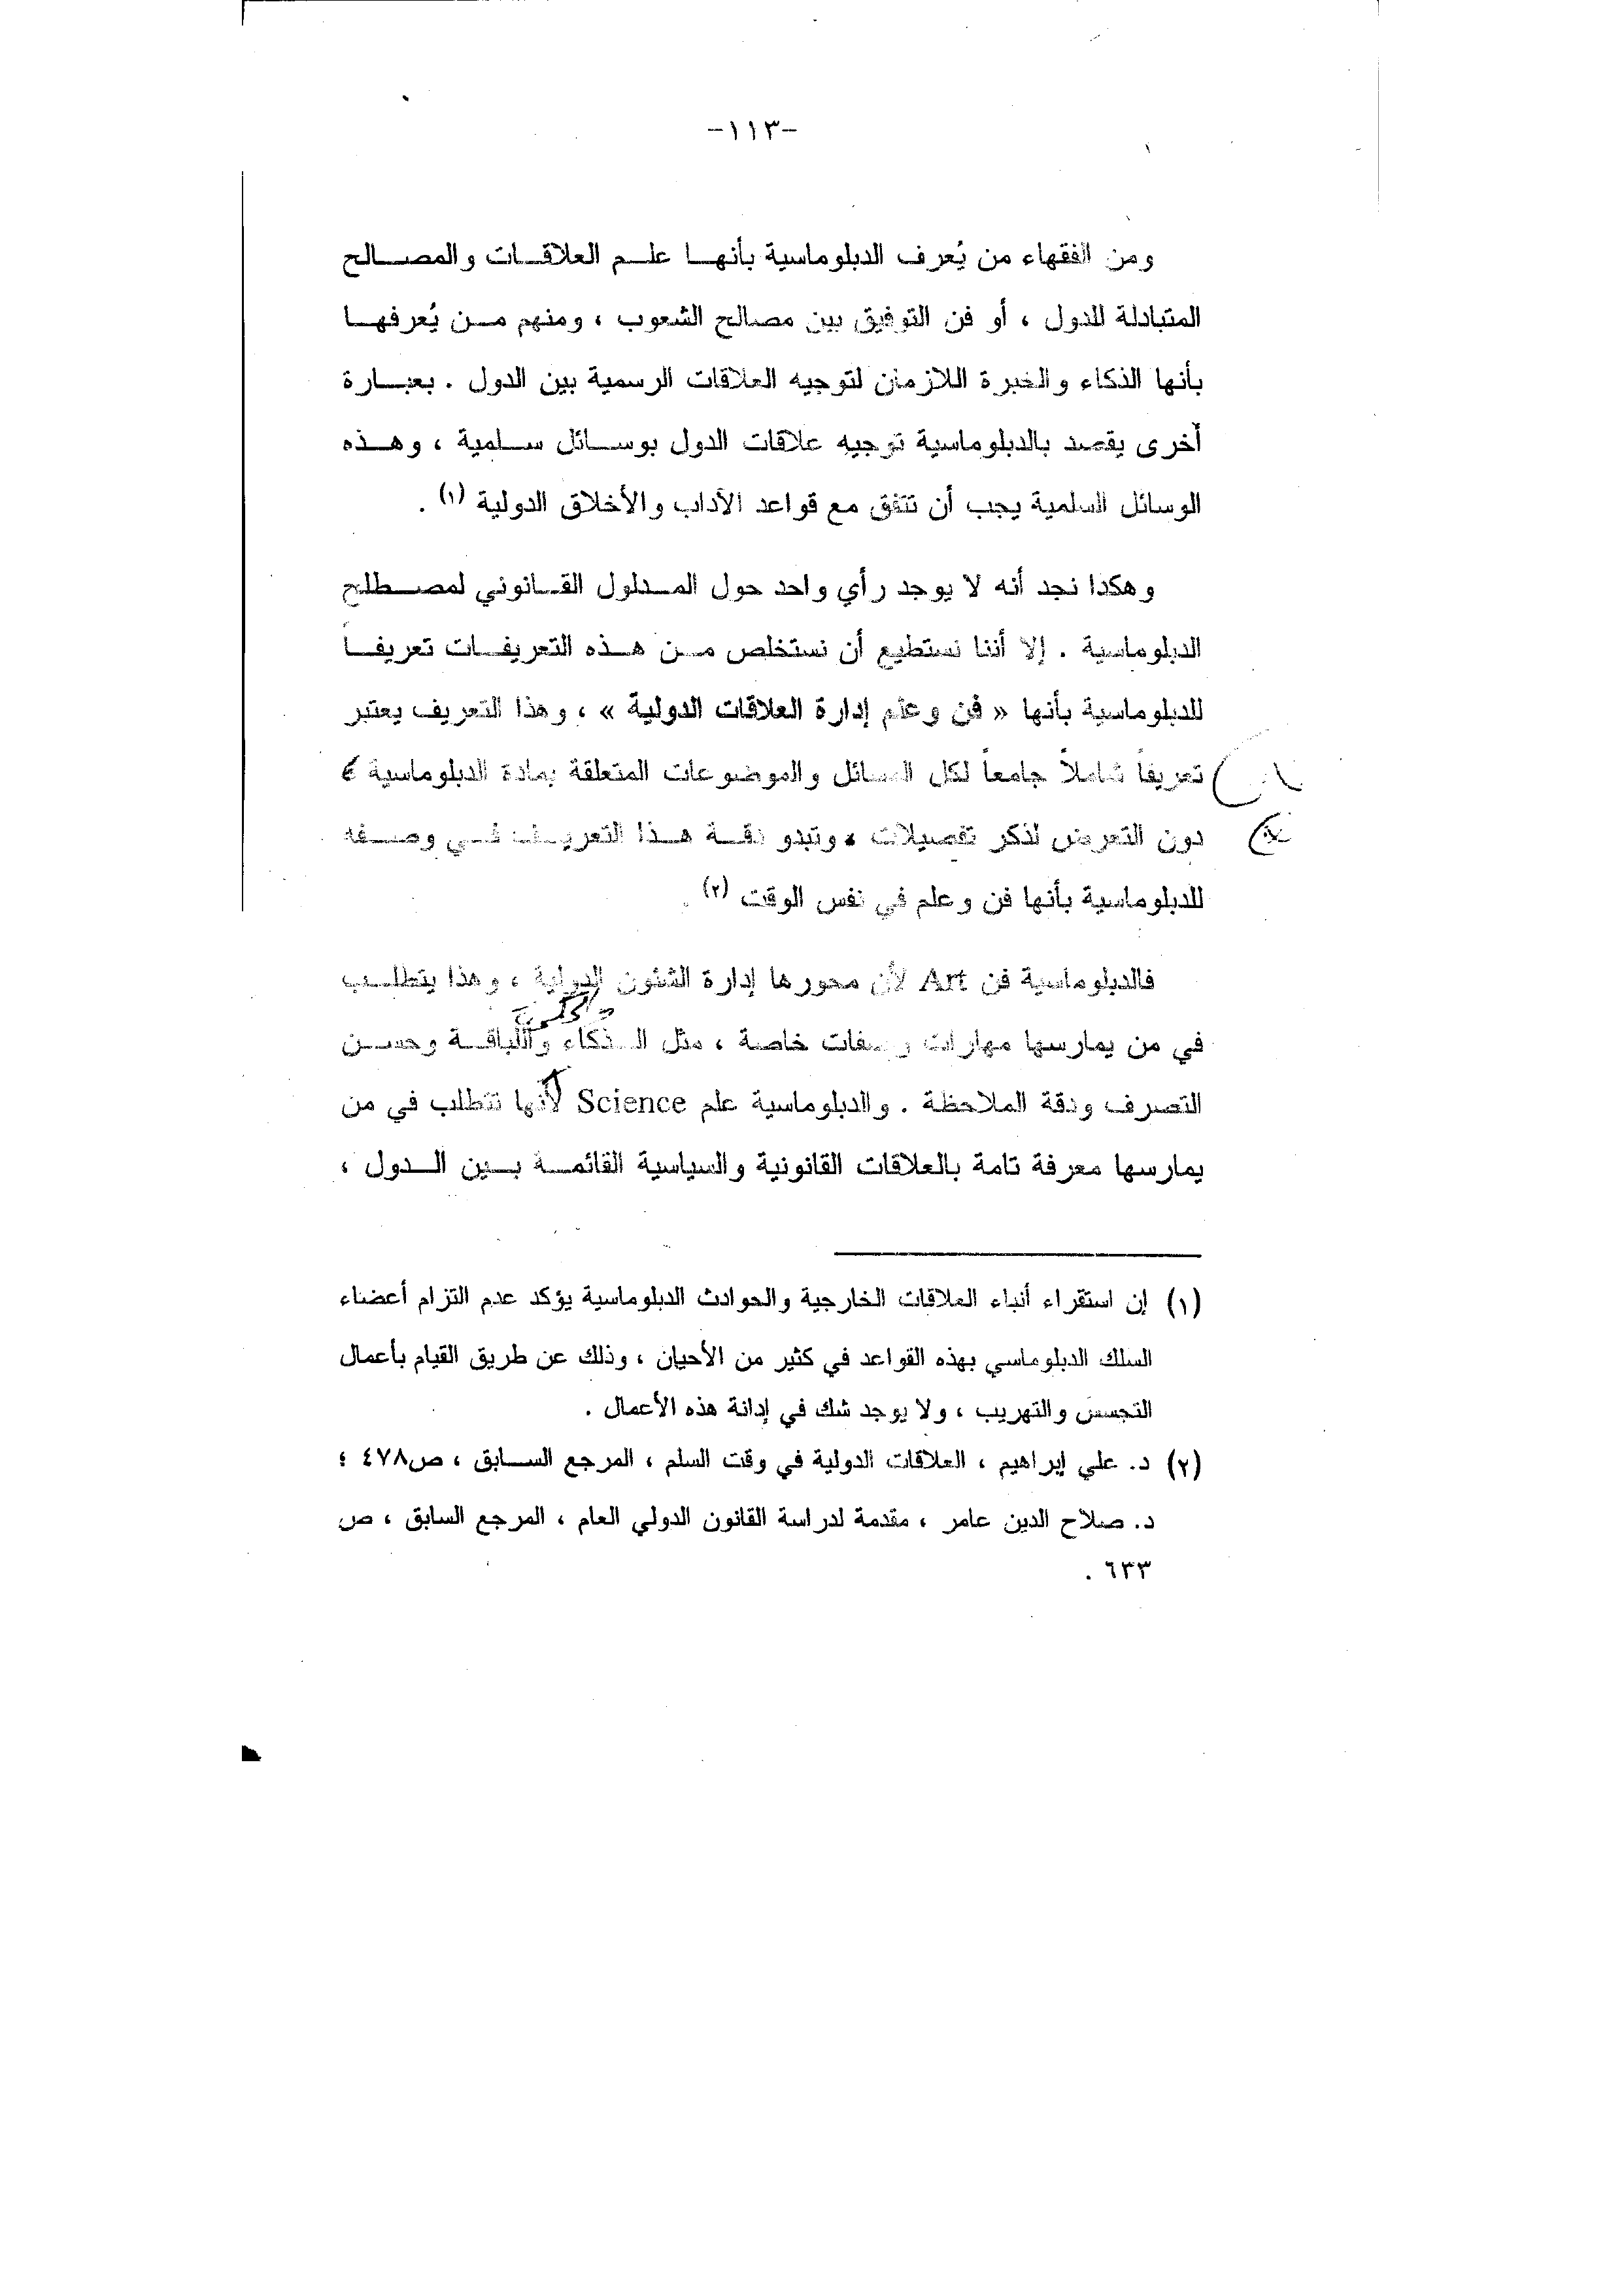 -١١٣-
ومن الفقهاء من يُعرف الدبلوماسية بأنها علم العلاقات والمصالح
المتبادلة للدول ، أو فن التوفيق بين مصالح الشعوب ، ومنهم من يُعرفها
بأنها الذكاء والخبرة اللازمان لتوجيه العلاقات الرسمية بين الدول . بعبارة
أخرى يقصد بالدبلوماسية توجيه علاقات الدول بوسائل سلمية ، وهذه
الوسائل السلمية يجب أن تتفق مع قواعد الآداب والأخلاق الدولية (١) .
وهكذا نجد أنه لا يوجد رأي واحد حول المدلول القانوني لمصطلح
الدبلوماسية . إلا أننا نستطيع أن نستخلص من هذه التعريفات تعريفاً
للدبلوماسية بأنها « فن وعلم إدارة العلاقات الدولية » ، وهذا التعريف يعتبر
تعريفاً شاملاً جامعاً لكل المسائل والموضوعات المتعلقة بمادة الدبلوماسية ،
دون التعرض لذكر تفصيلات ، وتبدو دقة هذا التعريف في وصفه
للدبلوماسية بأنها فن وعلم في نفس الوقت (٢) .
فالدبلوماسية فن Art لأن محورها إدارة الشئون الدولية ، وهذا يتطلب
في من يمارسها مهارات وصفات خاصة ، مثل الذكاء واللباقة وحسن
التصرف ودقة الملاحظة . والدبلوماسية علم Science لأنها تتطلب في من
يمارسها معرفة تامة بالعلاقات القانونية والسياسية القائمة بين الدول ،
(١) إن استقراء أنباء العلاقات الخارجية والحوادث الدبلوماسية يؤكد عدم التزام أعضاء
السلك الدبلوماسي بهذه القواعد في كثير من الأحيان ، وذلك عن طريق القيام بأعمال
التجسس والتهريب ، ولا يوجد شك في إدانة هذه الأعمال .
(٢) د. علي إبراهيم ، العلاقات الدولية في وقت السلم ، المرجع السابق ، ص٤٧٨ ؛
د. صلاح الدين عامر ، مقدمة لدراسة القانون الدولي العام ، المرجع السابق ، ص
٦٣٣ .